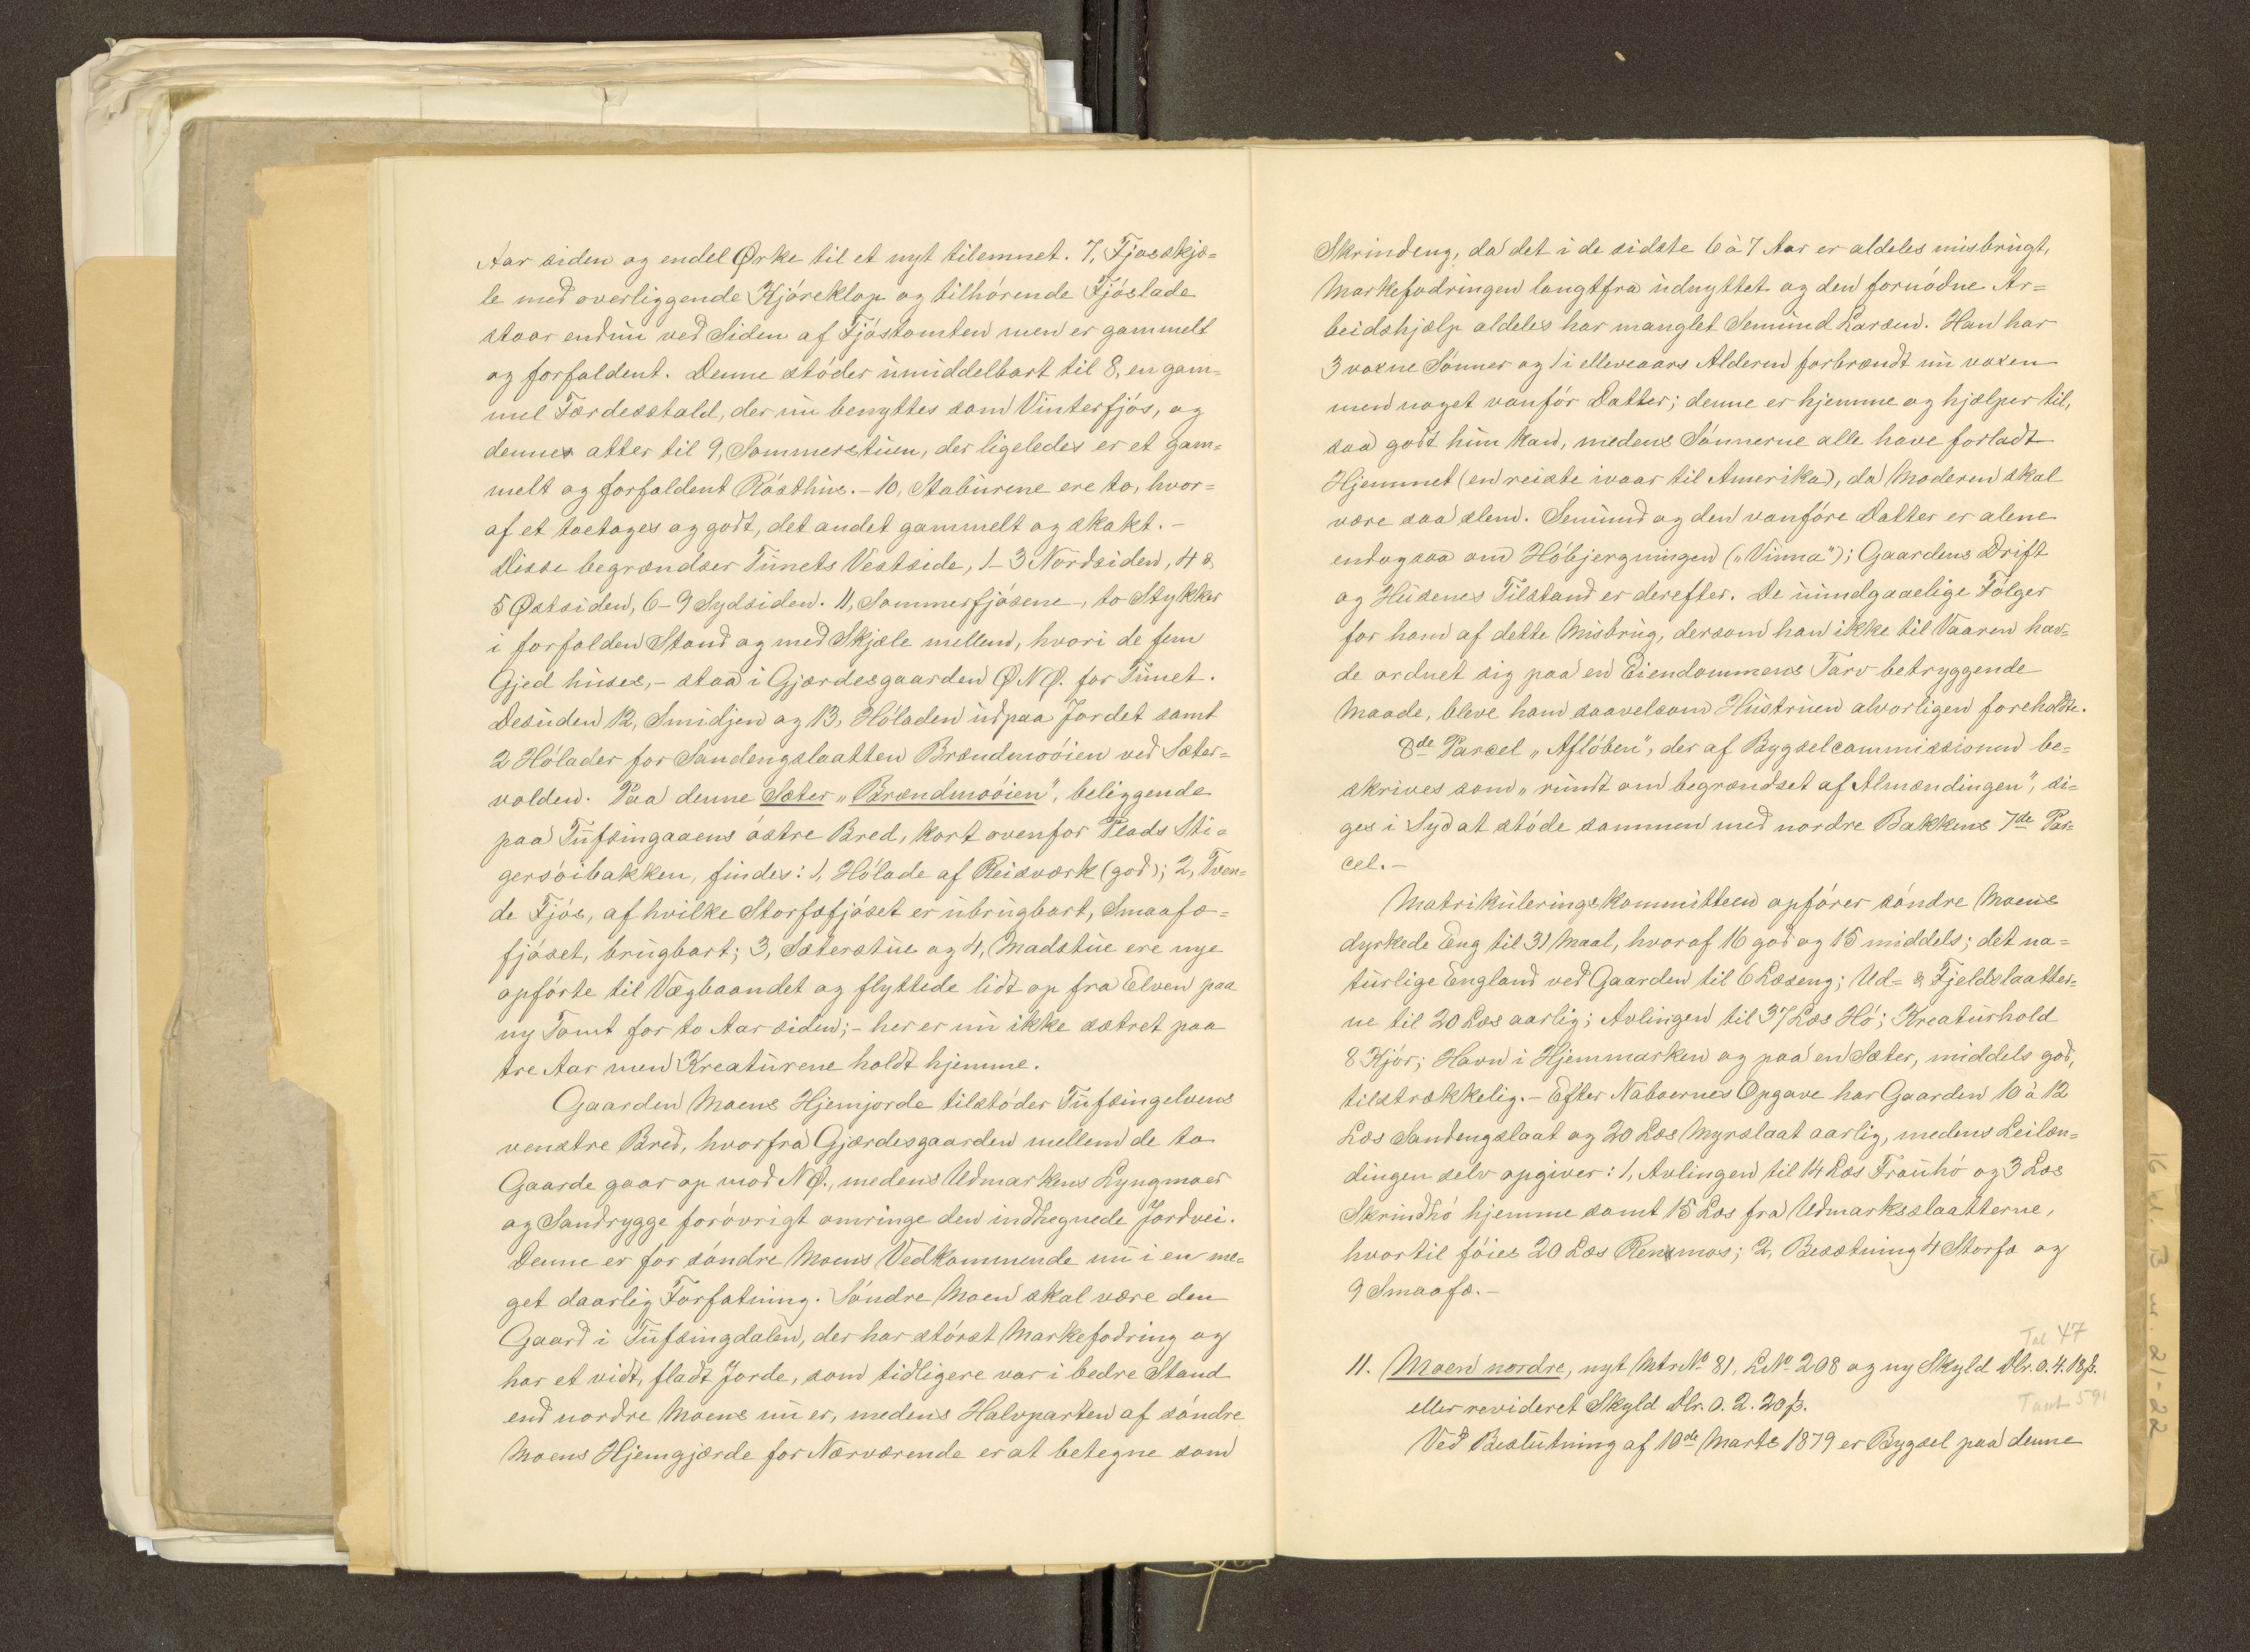 Aar siden og endel Ørke til et nyt tilemnet. 7, Fjosskjæ=
le med overliggende Kjöreklop og tilhörende Fjöslade
staar endnu ved Siden af Fjöstomten men er gammelt
og forfaldent. Denne stöder umiddelbart til 8, en gam=
mel Færdesstald, der nu benyttes som Vinterfjös, og
dennes atter til 9, Sommerstuen, der ligeledes er et gam=
melt og forfaldent Rösthus. - 10, Staburene ere to, hvor=
af et toetages og godt, det andet gammelt og skakt. -
Disse begrændser Tunets Vestside, 1-3 Nordsiden, 4 &
5 Østsiden, 6-9 Sydsiden. 11, Sommerfjösene -, to Stykker
i forfalden Stand og med Skjæle mellem, hvori de fem
Gjed huses, - staa i Gjærdesgaarden ØNØ. for Tunet.
Desuden 12, Smidjen og 13, Höladen udpaa Jordet samt
2 Hölader for Sandengslaatten Brændmoöien ved Sæter=
volden. Paa denne Sæter "Brændmoöien", beliggende
paa Tufsingaaens östre Bred, kort ovenfor Plads Sti=
gersöibakken, findes: 1, Hölade af Reisværk (god); 2, Tven=
de Fjös, af hvilke Storfæfjöset er ubrugbart, Smaafæ=
fjöset, brugbart; 3, Sæterstue og 4, Madstue ere nye
opförte til Vægbaandet og flyttede lidt op fra Elven paa
ny Tomt for to Aar siden; - her er nu ikke sætret paa
tre Aar men Kreaturene holdt hjemme.
Gaarden Moens Hjemjorde tilstöder Tufsingelvens
venstre Bred, hvorfra Gjærdesgaarden mellem de to
Gaarde gaar op mod NØ., medens Udmarkens Lyngmoer
og Sandrygge forövrigt omringe den indhegnede Jordvei.
Denne er for söndre Moens Vedkommende nu i en me=
get daarlig Forfatning. Söndre Moen skal være den
Gaard i Tufsingdalen, der har störst Markefodring og
har et vidt, fladt Jorde, som tidligere var i bedre Stand
end nordre Moens nu er, medens Halvparten af söndre
Moens Hjemgjærde for Nærværende er at betegne som
Skrindeng, da det i de sidste 6 à 7 Aar er aldeles misbrugt,
Markefodringen langtfra udnyttet og den fornödne Ar=
beidshjælp aldeles har manglet Semund Larsen. Han har
3 voxne Sönner og 1 i elleveaars Alderen forbrændt nu voxen
men noget vanför Datter; denne er hjemme og hjælper til,
saa godt hun kan, medens Sönnerne alle have forladt
Hjemmet (en reiste ivaar til Amerika), da Moderen skal
være saa slem. Semund og den vanföre Datter er alene
endogsaa om Höbjergningen ("Vinna"); Gaardens Drift
og Husenes Tilstand er derefter. De uundgaaelige Fölger
for ham af dette Misbrug, dersom han ikke til Vaaren hav=
de ordnet sig paa en Eiendommens Tarv betryggende
Maade, bleve ham saavelsom Hustruen alvorligen foreholdte.
8de Parcel "Aflöben", der af Bygselcommissionen be=
skrives som "rundt om begrændset af Almændingen", si=
ges i Syd at støde sammen med nordre Bakkens 7de Par=
cel. -
Matrikuleringskommitteen opförer söndre Moens
dyrkede Eng til 31 Maal, hvoraf 16 god og 15 middels; det na=
turlige England ved Gaarden til 6 Læseng; Ud= & Fjeldslaatter=
ne til 20 Læs aarlig; Avlingen til 37 Læs Hö; Kreaturhold
8 Kjör; Havn i Hjemmarken og paa en Sæter, middels god,
tilstrækkelig. - Efter Naboernes Opgave har Gaarden 10 à 12
Læs Sandengslaat og 20 Læs Myrslaat aarlig, medens Leilæn=
dingen selv opgiver: 1, Avlingen til 14 Læs Frauhö og 3 Læs
Skrindhö hjemme samt 15 Læs fra Udmarksslaatterne,
hvortil föies 20 Læs Renmos; 2, Besætning 4 Storfæ og
9 Smaafæ. -
Tal 47
11. Moen nordre, nyt Mtr.No 81, L.No 208 og ny Skyld Dlr. 0. 4. 18 ß.
eller revideret Skyld Dlr. 0. 2. 20 ß.
Tamt 591
Ved Beslutning af 10de Marts 1879 er Bygsel paa denne
16 4. B m. 21-22